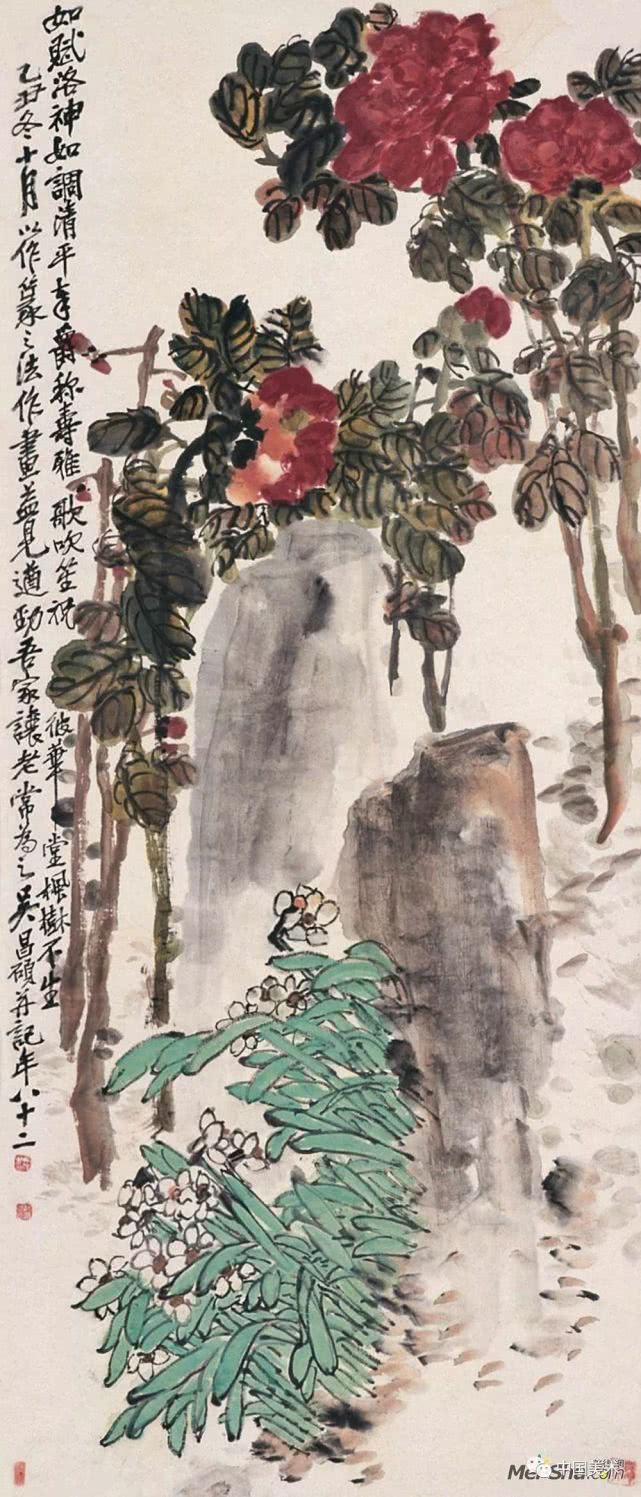 如賦洛神如調清平奉爵称壽雅歌吹笙祝彼華堂楓樹不生
乙丑冬十月以作篆之法作畫益見遒勁吾家讓老常為之吳昌碩并記年八十二
中国美术